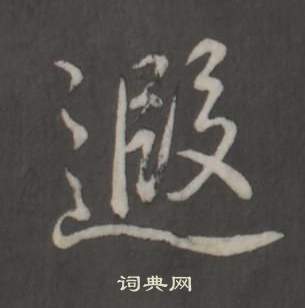 遐
词典网